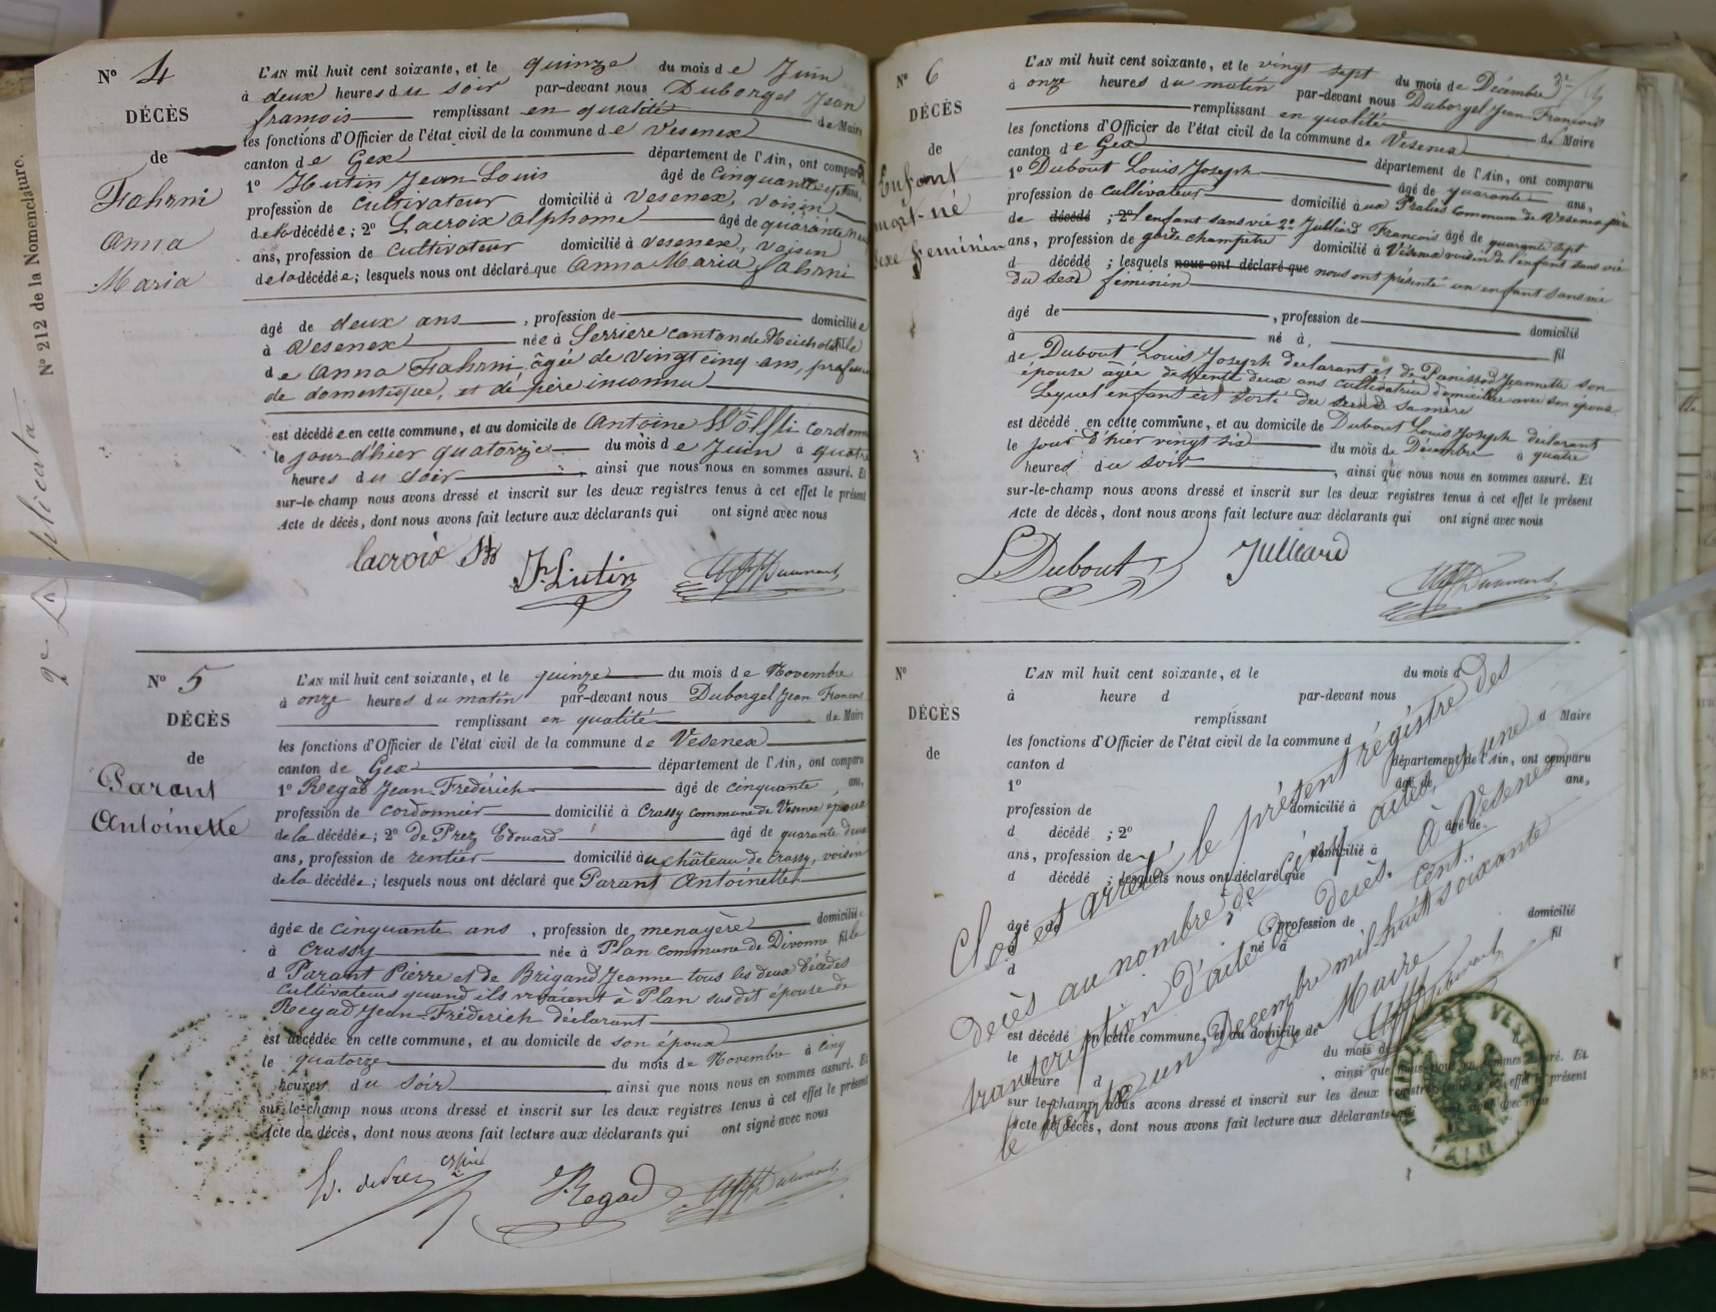 N° 212 de la Nomenclature.
N° 4
DÉCÈS
de
Fahrni
Anna
Maria
L'AN mil huit cent soixante, et le quinze du mois de Juin
à deux heures du soir par-devant nous Duborgel Jean
françois remplissant en qualité de Maire
les fonctions d'Officier de l'état civil de la commune de Vesenex
canton de Gex département de l'Ain, ont comparu
1° Hutin Jean Louis âgé de cinquante sept ans,
profession de cultivateur domicilié à Vesenex, voisin
de la décédée; 2° Lacroix alphonse âgé de quarante neuf
ans, profession de cultivateur domicilié à vesenex, voisin
de la décédée; lesquels nous ont déclaré que Anna Maria fahrni
âgé de deux ans, profession de domiciliée
à Vesenex née à Serriere canton de fille
de Anna Fahrni, âgée de vingt cinq ans, profession
de domestique, et de père inconnu
est décédée en cette commune, et au domicile de Antoine Wölfli cordonnier
le jour d'hier quatorze du mois de Juin à quatre
heures du soir, ainsi que nous nous en sommes assuré. Et
sur-le-champ nous avons dressé et inscrit sur les deux registres tenus à cet effet le présent
Acte de décès, dont nous avons fait lecture aux déclarants qui ont signé avec nous
lacroix
N° 5
DÉCÈS
de
Parant
Antoinette
L'AN mil huit cent soixante, et le quinze du mois de Novembre
à onze heures du matin par-devant nous Duborgel Jean François
remplissant en qualité de Maire
les fonctions d'Officier de l'état civil de la commune de Vesenex
canton de Gex département de l'Ain, ont comparu
1° Regad Jean-Frédérich âgé de cinquante ans,
profession de cordonnier domicilié à Crassy commune de Vesenex époux
de la décédée; 2° De Prez Edouard âgé de quarante deux
ans, profession de rentier domicilié au château de Crassy, voisin
de la décédée; lesquels nous ont déclaré que Parant Antoinette
âgée de cinquante ans, profession de menagère domiciliée
à Crassy née à Plan commune de Divonne fille
d Parant Pierre et de Brigand Jeanne tous les deux décédés
cultivateurs quand ils vivaient à Plan susdit épouse de
Regad Jean-Fréderich déclarant
est décédée en cette commune, et au domicile de son époux
le quatorze du mois de Novembre à cinq
heures du soir, ainsi que nous nous en sommes assuré. Et
sur-le-champ nous avons dressé et inscrit sur les deux registres tenus à cet effet le présent
Acte de décès, dont nous avons fait lecture aux déclarants qui ont signé avec nous
Regad
N° 6
DÉCÈS
de
Enfant
mort-né
sexe féminin
L'AN mil huit cent soixante, et le vingt sept du mois de Décembre
à onze heures du matin par-devant nous Duborgel Jean-François
remplissant en qualité de Maire
les fonctions d'Officier de l'état civil de la commune de Vesenex
canton de Gex département de l'Ain, ont comparu
1° Dubout Louis Joseph âgé de quarante ans,
profession de cultivateur domicilié aux Pralies commune de Vesenex père
de décédé; 2° l'enfant sans vie 2° Julliard François âgé de quarante sept
ans, profession de garde champêtre domicilié à Vésenex voisin de l'enfant sans vie
d décédé; lesquels nous ont déclaré que nous ont présenté un enfant sans vie
du sexe féminin
âgé de, profession de domicilié
à né à, fil
de Dubout Louis Joseph declarant et de Panissod Jeannette son
épouse agée de trente deux ans cultivatrice domiciliée avec son époux
Lequel enfant est sorti du sein de sa mère
est décédé en cette commune, et au domicile de Dubout Louis Joseph declarant
le jour d'hier vingt six du mois de Décembre à quatre
heures du soir, ainsi que nous nous en sommes assuré. Et
sur-le-champ nous avons dressé et inscrit sur les deux registres tenus à cet effet le présent
Acte de décès, dont nous avons fait lecture aux déclarants qui ont signé avec nous
L Dubout Julliard
N°
DÉCÈS
de
L'AN mil huit cent soixante, et le du mois d
à heure d par-devant nous
remplissant d Maire
les fonctions d'Officier de l'état civil de la commune d
canton d département de l'Ain, ont comparu
1° âgé de ans,
profession de domicilié à
d décédé; 2° âgé de
ans, profession de domicilié à
d décédé; lesquels nous ont déclaré que
âgé de, profession de domicilié
à né à fil
d
est décédé en cette commune, et au domicile de
le du mois de
heure d, ainsi que nous nous en sommes assuré. Et
sur-le-champ nous avons dressé et inscrit sur les deux registres tenus à cet effet le présent
Acte de décès, dont nous avons fait lecture aux déclarants
Clos et arrêté le présent régistre des
décès au nombre de cinq actes, et une
transcription d'acte de décès. à Vesenex
le trente un Decembre mil huit cent soixante
Le Maire
AIN